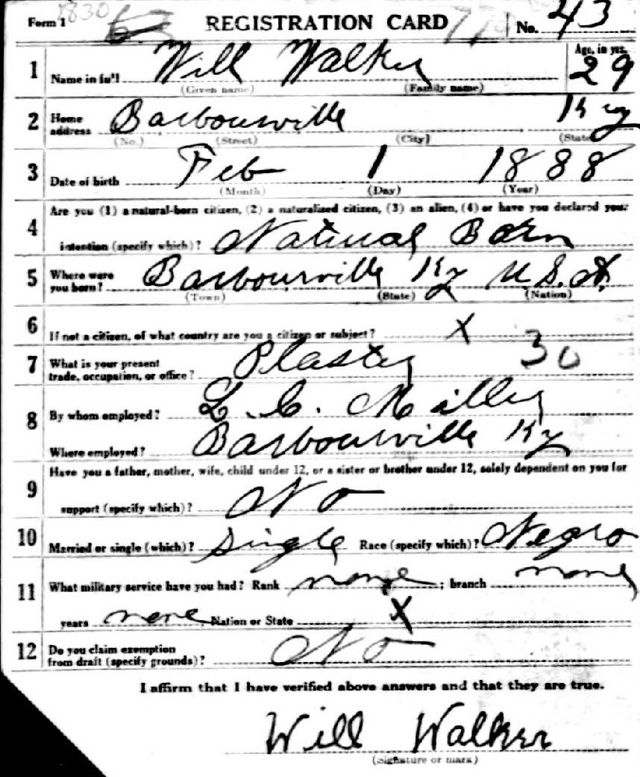 Form 1 1830 63 REGISTRATION CARD No. 43
1 Name in full Will Walker Age, in yrs. 29
(Given name) (Family name)
2 Home address Barbourville Ky
(No.) (Street) (City) (State)
3 Date of birth Feb 1 1888
(Month) (Day) (Year)
4 Are you (1) a natural-born citizen, (2) a naturalized citizen, (3) an alien, (4) or have you declared your
intention (specify which)? Natural Born
5 Where were you born? Barbourville Ky U.S.A.
(Town) (State) (Nation)
6 If not a citizen, of what country are you a citizen or subject? X
7 What is your present trade, occupation, or office? Plaster 30
8 By whom employed? L. C. Miller
Where employed? Barbourville Ky
9 Have you a father, mother, wife, child under 12, or a sister or brother under 12, solely dependent on you for
support (specify which)? No
10 Married or single (which)? Single Race (specify which)? Negro
11 What military service have you had? Rank none ; branch none
years none , Nation or State X
12 Do you claim exemption from draft (specify grounds)? No
I affirm that I have verified above answers and that they are true.
Will Walker
(Signature or mark)